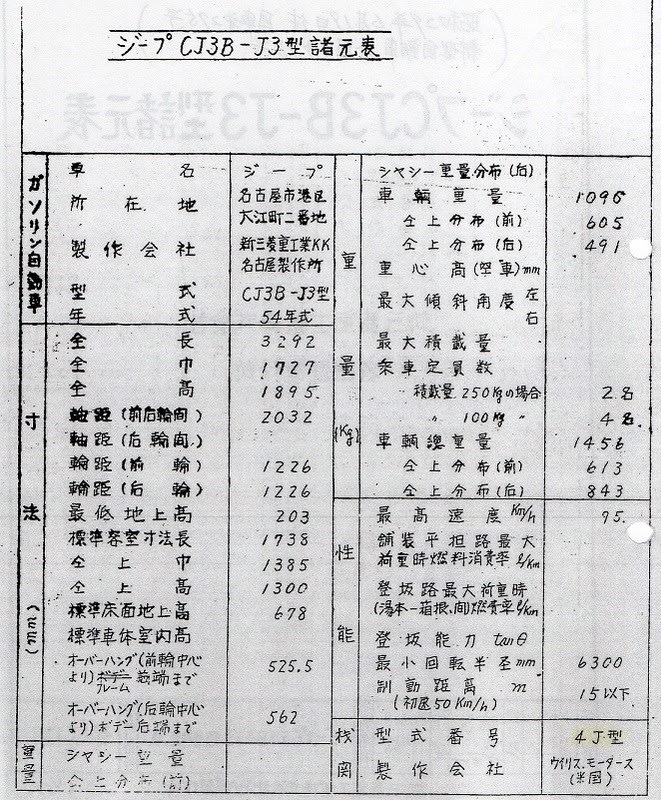 ジープCJ3B-J3型諸元表
ガソリン自動車
車名 ジープ
所在地 名古屋市港区
大江町二番地
製作会社 新三菱重工業KK
名古屋製作所
型式 CJ3B-J3型
年式 54年式
寸法 (mm)
全長 3292
全巾 1727
全高 1895.
軸距(前后輪間) 2032
軸距(后輪間)
輪距(前輪) 1226
輪距(后輪) 1226
最低地上高 203
標準容室寸法長 1738
仝上巾 1385
仝上高 1300
標準床面地上高 678
標準車体室内高
オーバーハング(前輪中心
より)ボデー前端まで 525.5
フレーム
オーバーハング(后輪中心
より)ボデー后端まで 562
重量
シヤシー重量
仝上分布(前)
重量 (Kg)
シヤシー重量分布(后)
車輌重量 1096
仝上分布(前) 605
仝上分布(后) 491
重心高(空車)mm
最大傾斜角度 左
右
最大積載量
乗車定員数
積載量250Kgの場合 2名
〃 100Kg 〃 4名
車輌總重量 1456
仝上分布(前) 613
仝上分布(后) 843
性能
最高速度 Km/h 95.
舗装平担路最大
荷重時燃料消費率 ℓ/Km
登坂路最大荷重時
(湯本-箱根、間)燃費率ℓ/Km
登坂能力 tanθ
最小回転半径mm 6300
制動距离 m 15以下
(初速50Km/h)
機関
型式番号 4J型
製作会社 ウイリス.モータース
(米国)